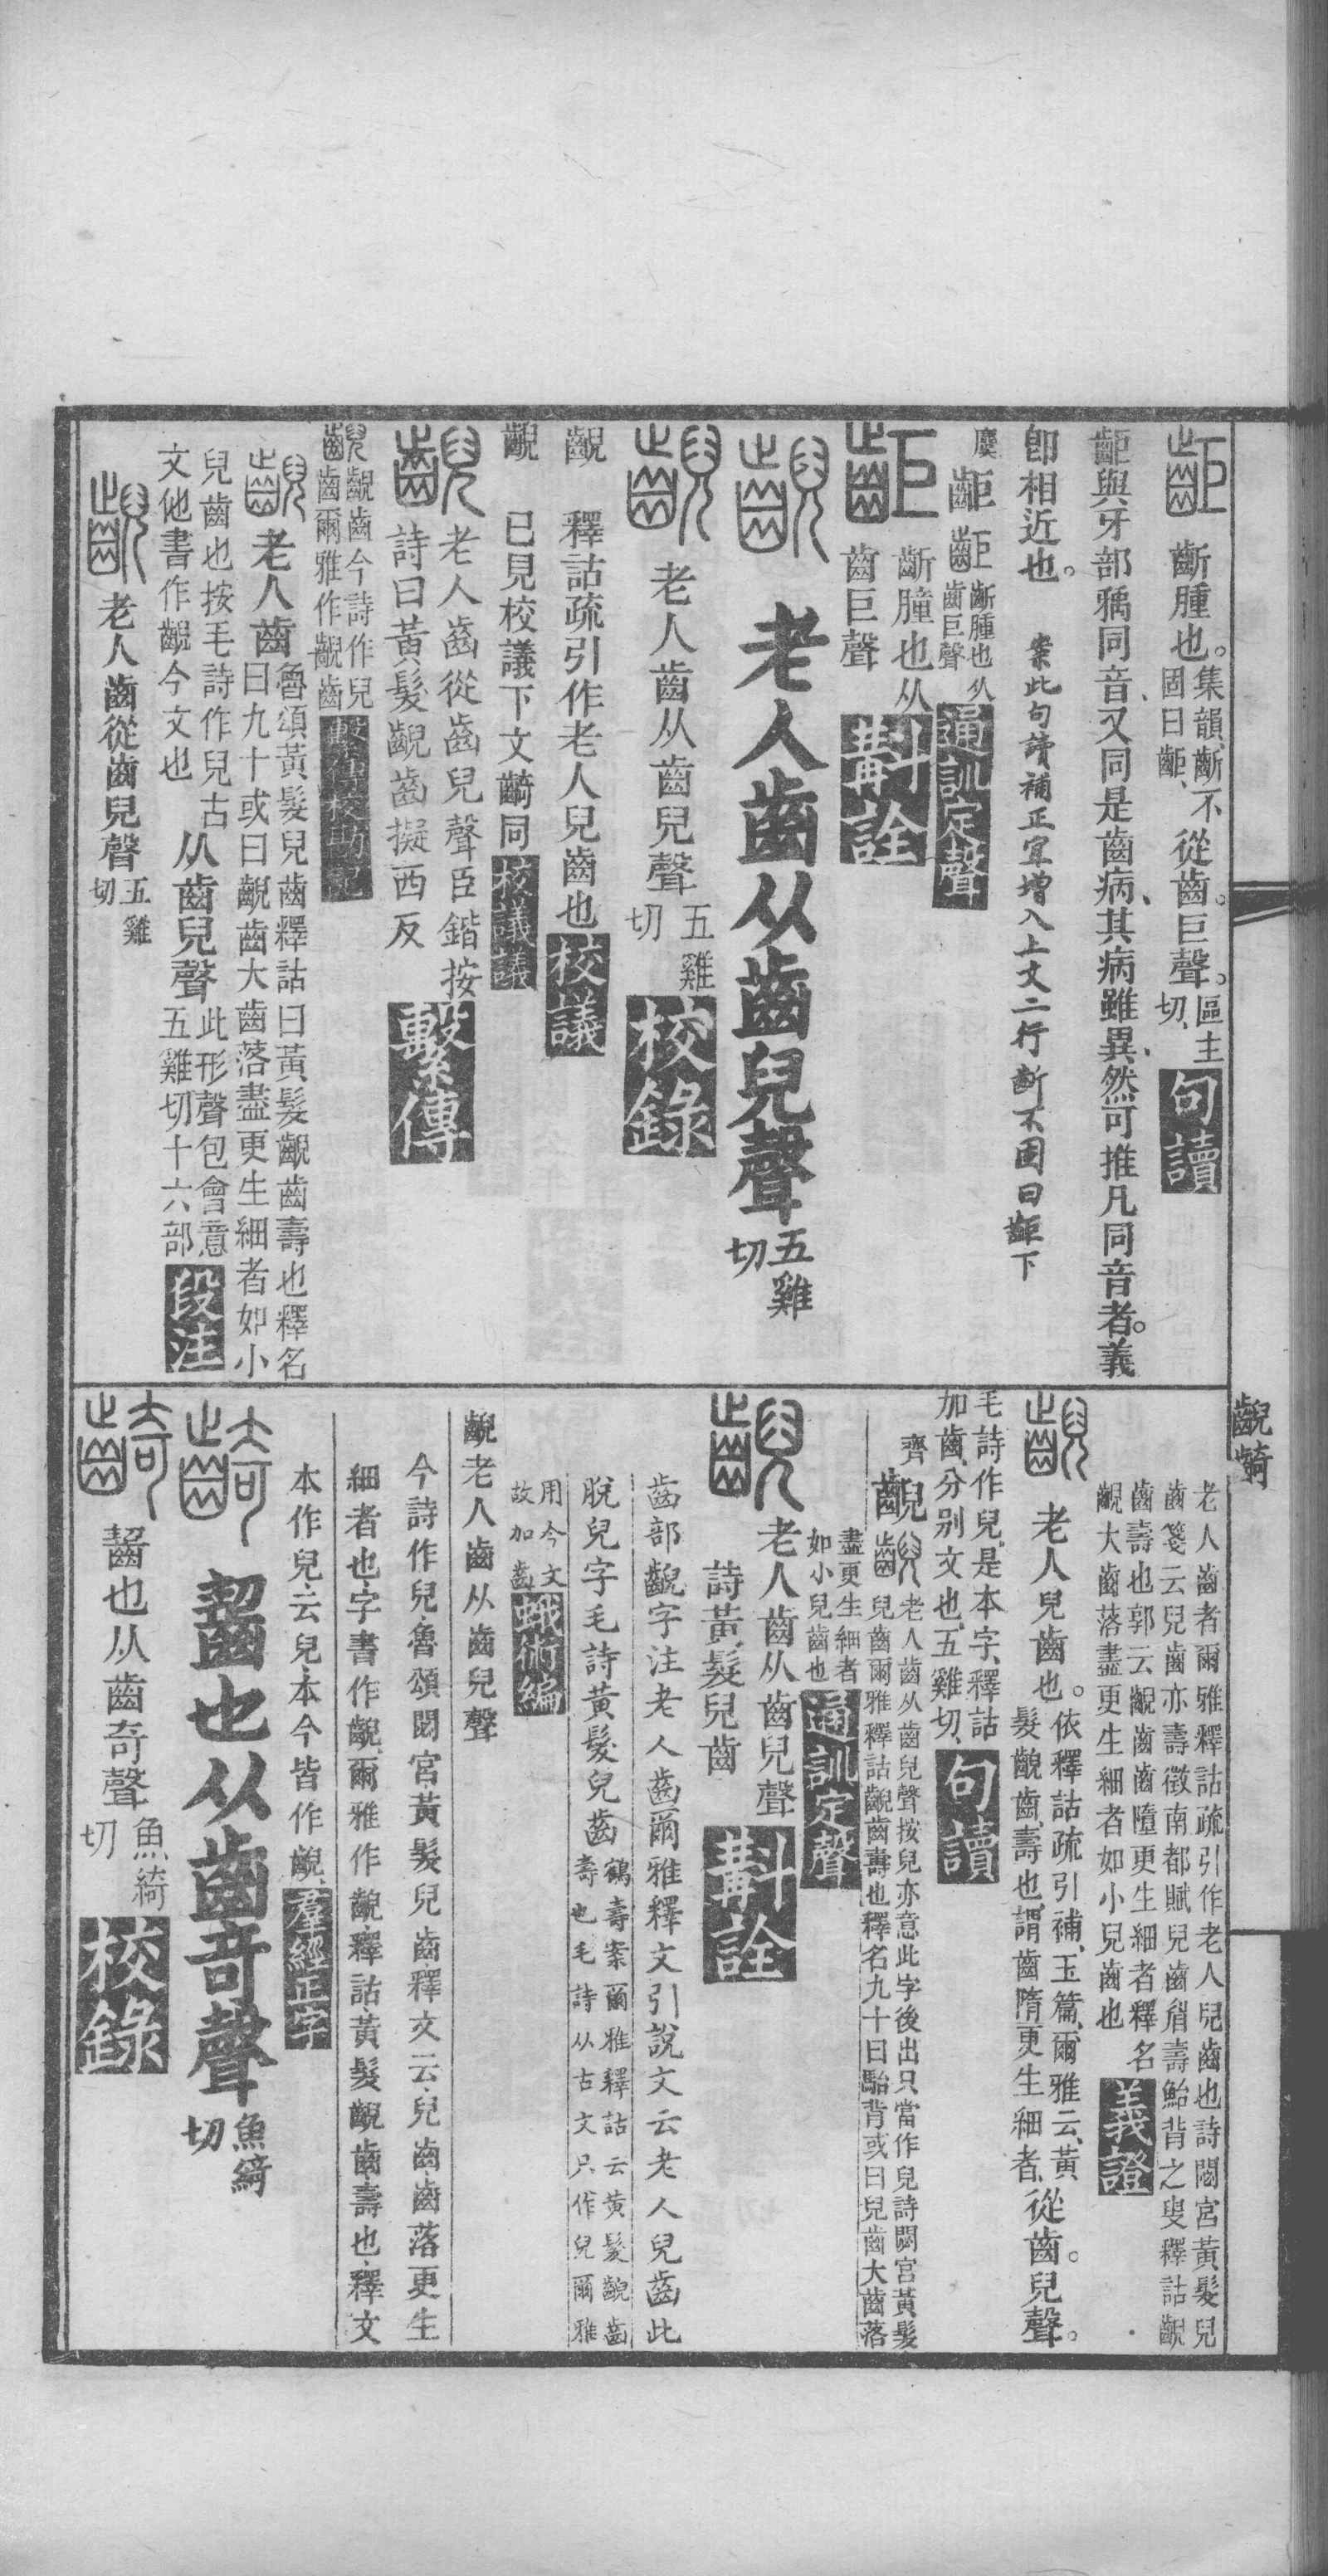 齨齮
齨 齗腫也。集韻、齗不固曰齨、從齒。巨聲。區主切、句讀
齨與牙部㺊同音、又同是齒病、其病雖異、然可推凡同音者。義
卽相近也。 案此句讀補正宜增入上文二行齗不固曰齨下
齗腫也从齒巨聲 通訓定聲
齗腫也从齒巨聲 斠詮
齯 老人齒从齒兒聲 五雞切
齯 老人齒从齒兒聲 五雞切 校錄
齯 釋詁疏引作老人兒齒也 校議
齯 已見校議下文齮同 校議議
齯 老人齒從齒兒聲臣鍇按詩曰黃髮齯齒擬西反 繫傳
齯齯齒今詩作兒齒爾雅作齯齒 繫傳校勘記
齯 老人齒 魯頌黃髮兒齒釋詁曰黃髮齯齒壽也釋名曰九十或曰齯齒大齒落盡更生細者如小
兒齒也按毛詩作兒古文他書作齯今文也 从齒兒聲 此形聲包會意五雞切十六部 段注
齯 老人齒從齒兒聲 五雞切
老人齒者爾雅釋詁疏引作老人兒齒也詩閟宮黃髮兒
齒箋云兒齒亦壽徵南都賦兒齒眉壽鮐背之叟釋詁齯
齒壽也郭云齯齒齒墮更生細者釋名
齯大齒落盡更生細者如小兒齒也 義證
齯 老人兒齒也。依釋詁疏引補、玉篇、爾雅云、黃髮齯齒、壽也、謂齒隋更生細者、從齒。兒聲。
毛詩作兒、是本字、釋詁加齒、分別文也、五雞切、句讀
齊 齯 老人齒从齒兒聲按兒亦意此字後出只當作兒詩閟宮黃髮兒齒爾雅釋詁齯齒壽也釋名九十曰鮐背或曰兒齒大齒落
盡更生細者如小兒齒也 通訓定聲
齯 老人齒从齒兒聲詩黃髮兒齒 斠詮
齒部齯字注老人齒爾雅釋文引說文云老人兒齒此
脫兒字毛詩黃髮兒齒 鶴壽案爾雅釋詁云黃髮齯齒壽也毛詩从古文只作兒爾雅
用今文故加齒 蛾術編
齯老人齒从齒兒聲
今詩作兒魯頌閟宮黃髮兒齒釋文云兒齒齒落更生
細者也字書作齯爾雅作齯釋詁黃髮齯齒壽也釋文
本作兒云兒本今皆作齯 羣經正字
齮 齧也从齒奇聲 魚綺切
齮 齧也从齒奇聲 魚綺切 校錄